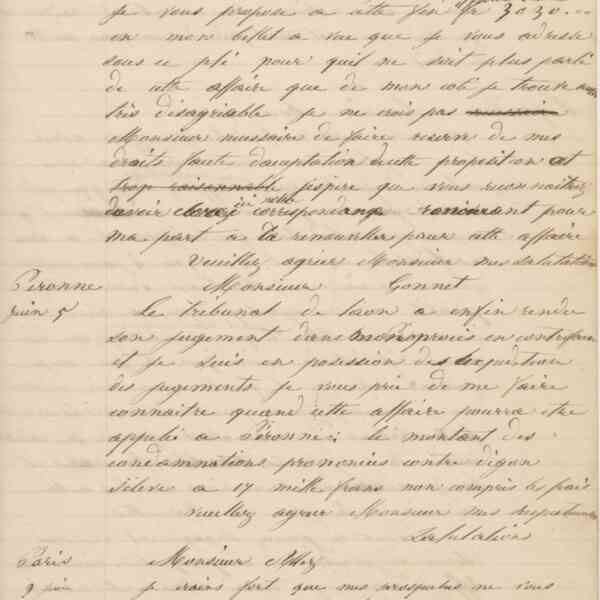 je vous propose a cette fin fr 3030.--
en mon billet a vue que je vous adresse
sous ce pli pour quil ne soit plus parlé
de cette affaire que de mon coté je trouve
très désagréable je ne crois pas
Monsieur nécessaire de faire réserve de mes
droits faute dacceptation de cette proposition
trop raisonnable jespère que vous reconnaitrez
devoir clore ici notre correspondance renonçant pour
ma part a la renouveller pour cette affaire
Veuillez agréer Monsieur mes salutations
Péronne Monsieur Gonnet
juin 5 Le tribunal de Laon a enfin rendu
son jugement dans mon procès en contrefaçon
et je suis en possession des expéditions
des jugements je vous prie de me faire
connaitre quand cette affaire pourra etre
appelée a Péronne: le montant des
condamnations prononcées contre digon
sélève a 17 mille frans non compris les frais
veuillez agréer Monsieur mes respectueuses
Salutations
Paris Monsieur
9 juin je crains fort que mes prospectus ne vous